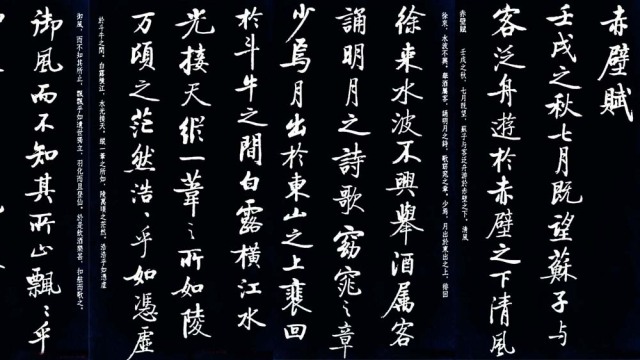 赤壁賦
壬戌之秋七月既望蘇子与
客泛舟遊於赤壁之下清風
赤壁賦　壬戌之秋，七月既望，蘇子与客泛舟游於赤壁之下。清風
徐來，水波不興。舉酒屬客，誦明月之詩，歌窈窕之章。少焉，月出於東山之上，徘徊
徐来水波不興舉酒属客
誦明月之詩歌窈窕之章
少焉月出於東山之上裵回
於斗牛之間白露橫江水
光接天縱一葦之所如陵
万頃之茫然浩〻乎如馮虛
於斗牛之間。白露橫江，水光接天。縱一葦之所如，陵萬頃之茫然。浩浩乎如馮虛
御風，而不知其所止；飄飄乎如遺世獨立，羽化而登仙。於是飲酒樂甚，扣舷而歌之。
御風而不知其所止飄〻乎